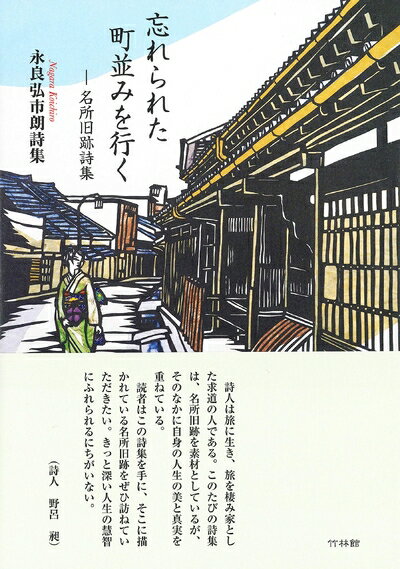 忘れられた
町並みを行く
―名所旧跡詩集
Nagara Koichiro
永良弘市朗詩集
詩人は旅に生き、旅を棲み家とし
た求道の人である。このたびの詩集
は、名所旧跡を素材としているが、
そのなかに自身の人生の美と真実を
重ねている。
読者はこの詩集を手に、そこに描
かれている名所旧跡をぜひ訪ねてい
ただきたい。きっと深い人生の慧智
にふれられるにちがいない。
（詩人 野呂 昶）
竹林館